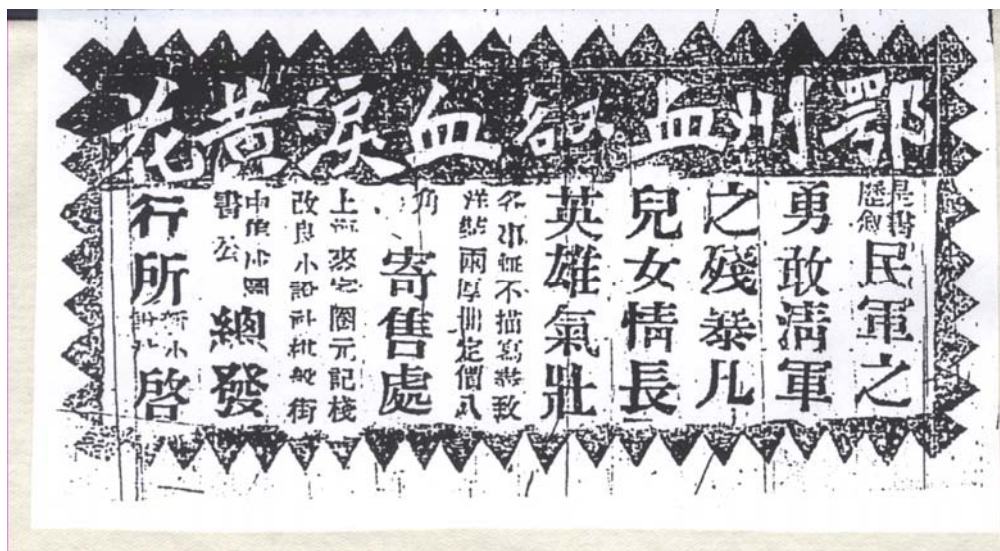 鄂州血 名 血淚黃花
是書歷敘民軍之
勇敢清軍
之殘暴凡
兒女情長
英雄氣壯
不描寫盡致
洋裝兩厚冊定價八
角 寄售處
上海麥家圈元記棧
改良小說社棋盤街
中圖
書公 總發
行所 小啓